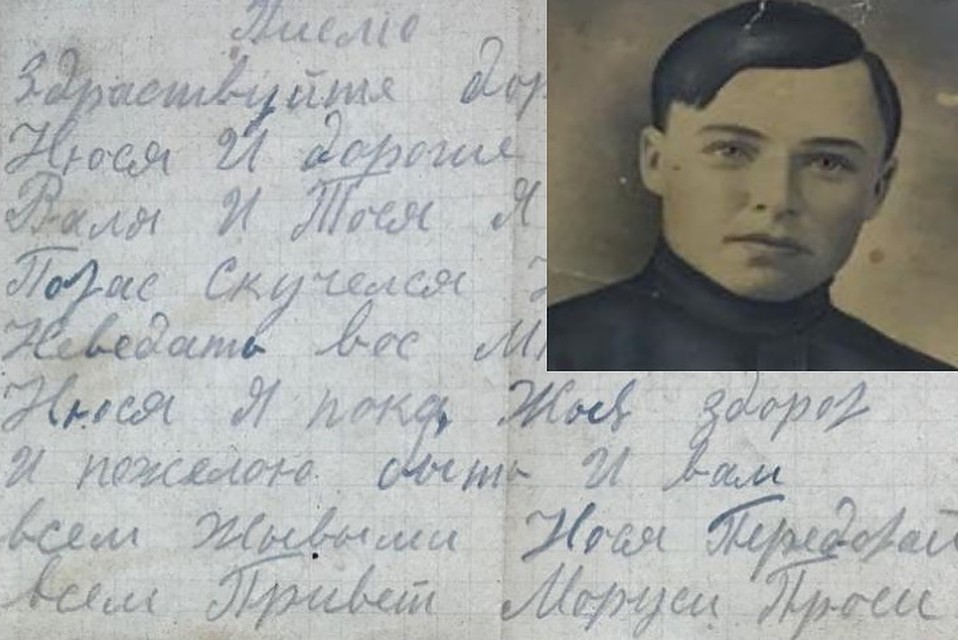 Писмо
Здраствуйтя дор
Нюся И дорогие
Валя И Тося Я
Повас Скучелся
Неведать вос
Нюся Я пока Жыв здоров
И пожелою быть И вам
всем Жывыми Нюся Передовай
всем Привет Моруси Проси